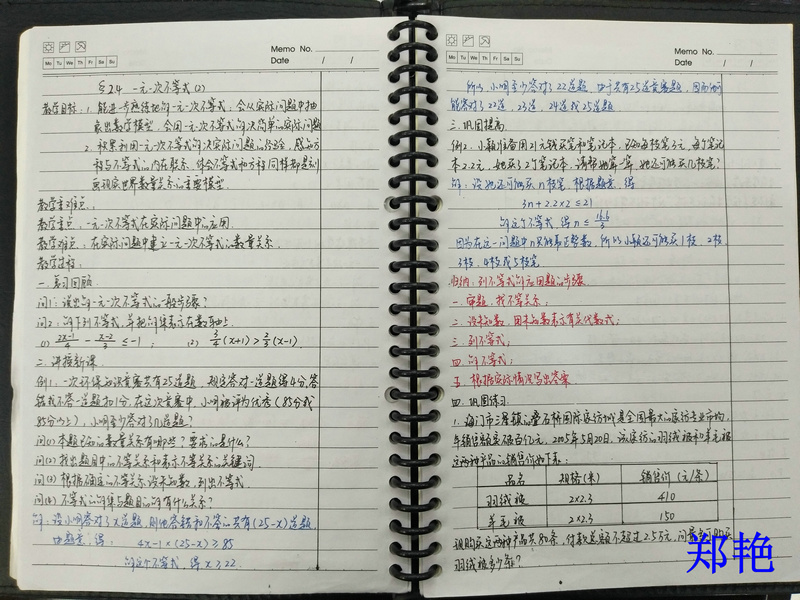 Memo No.
Mo Tu We Th Fr Sa Su
Date / /
§2.4 一元一次不等式(2)
教学目标:1. 能进一步熟练地解一元一次不等式,会从实际问题中抽
象出数学模型,会用一元一次不等式解决简单的实际问题
2. 积累利用一元一次不等式解决实际问题的经验,感知方
程与不等式的内在联系,体会不等式和方程同样都是刻
画现实世界数量关系的重要模型.
教学重难点:
教学重点:一元一次不等式在实际问题中的应用.
教学难点:在实际问题中建立一元一次不等式的数量关系.
教学过程:
一. 复习回顾
问1:说出解一元一次不等式的一般步骤?
问2:解下列不等式,并把解集表示在数轴上.
(1) (2x-1)/4 - (x-2)/3 ≤ -1; (2) 3/4(x+1) > 2/3(x-1).
二. 讲授新课.
例1. 一次环保知识竞赛共有25道题,规定答对一道题得4分,答
错或不答一题扣1分,在这次竞赛中,小明被评为优秀(85分或
85分以上),小明至少答对了几道题?
问(1)本题已知的数量关系有哪些?要求的是什么?
问(2)找出题目中的不等关系和表示不等关系的关键词.
问(3)根据不等关系,设未知数,列出不等式.
问(4)不等式的解集与题目的解有什么关系?
解:设小明答对了x道题,则他答错和不答的共有(25-x)道题.
由题意,得: 4x-1×(25-x)≥85
解这个不等式,得 x≥22.
Memo No.
Mo Tu We Th Fr Sa Su
Date / /
所以,小明至少答对了22道题,由于共有25道竞赛题,因而他可
能答对了22道,23道,24道或25道题.
三. 巩固提高.
例2. 小颖准备用21元钱买笔和笔记本,已知每枝笔3元,每个笔记
本2.2元,她买了2个笔记本,请帮她算一算,她还可能买几枝笔?
解:设她还可能买n枝笔,根据题意,得
3n+2.2×2≤21
解这个不等式,得 n≤16.6/3
因为在这一问题中n只能取正整数,所以小颖还可能买1枝、2枝、
3枝、4枝或5枝笔
归纳:列不等式解应用题的步骤
一. 审题,找不等关系;
二. 设未知数,用未知数表示有关代数式;
三. 列不等式;
四. 解不等式;
五. 根据实际情况写出答案.
四. 巩固练习.
1. 海门市三星镇的叠石桥国际家纺城是全国最大的家纺专业市场,
年销售额突破百亿元,2005年5月20日,该家纺的羽绒被和羊毛被
这两种产品的销售价如下表:
品名 规格(米) 销售价(元/条)
羽绒被 2×2.3 410
羊毛被 2×2.3 150
现购买这两种产品共80条,付款总额不超过2.5万元,问最多可购买
羽绒被多少条?
郑艳